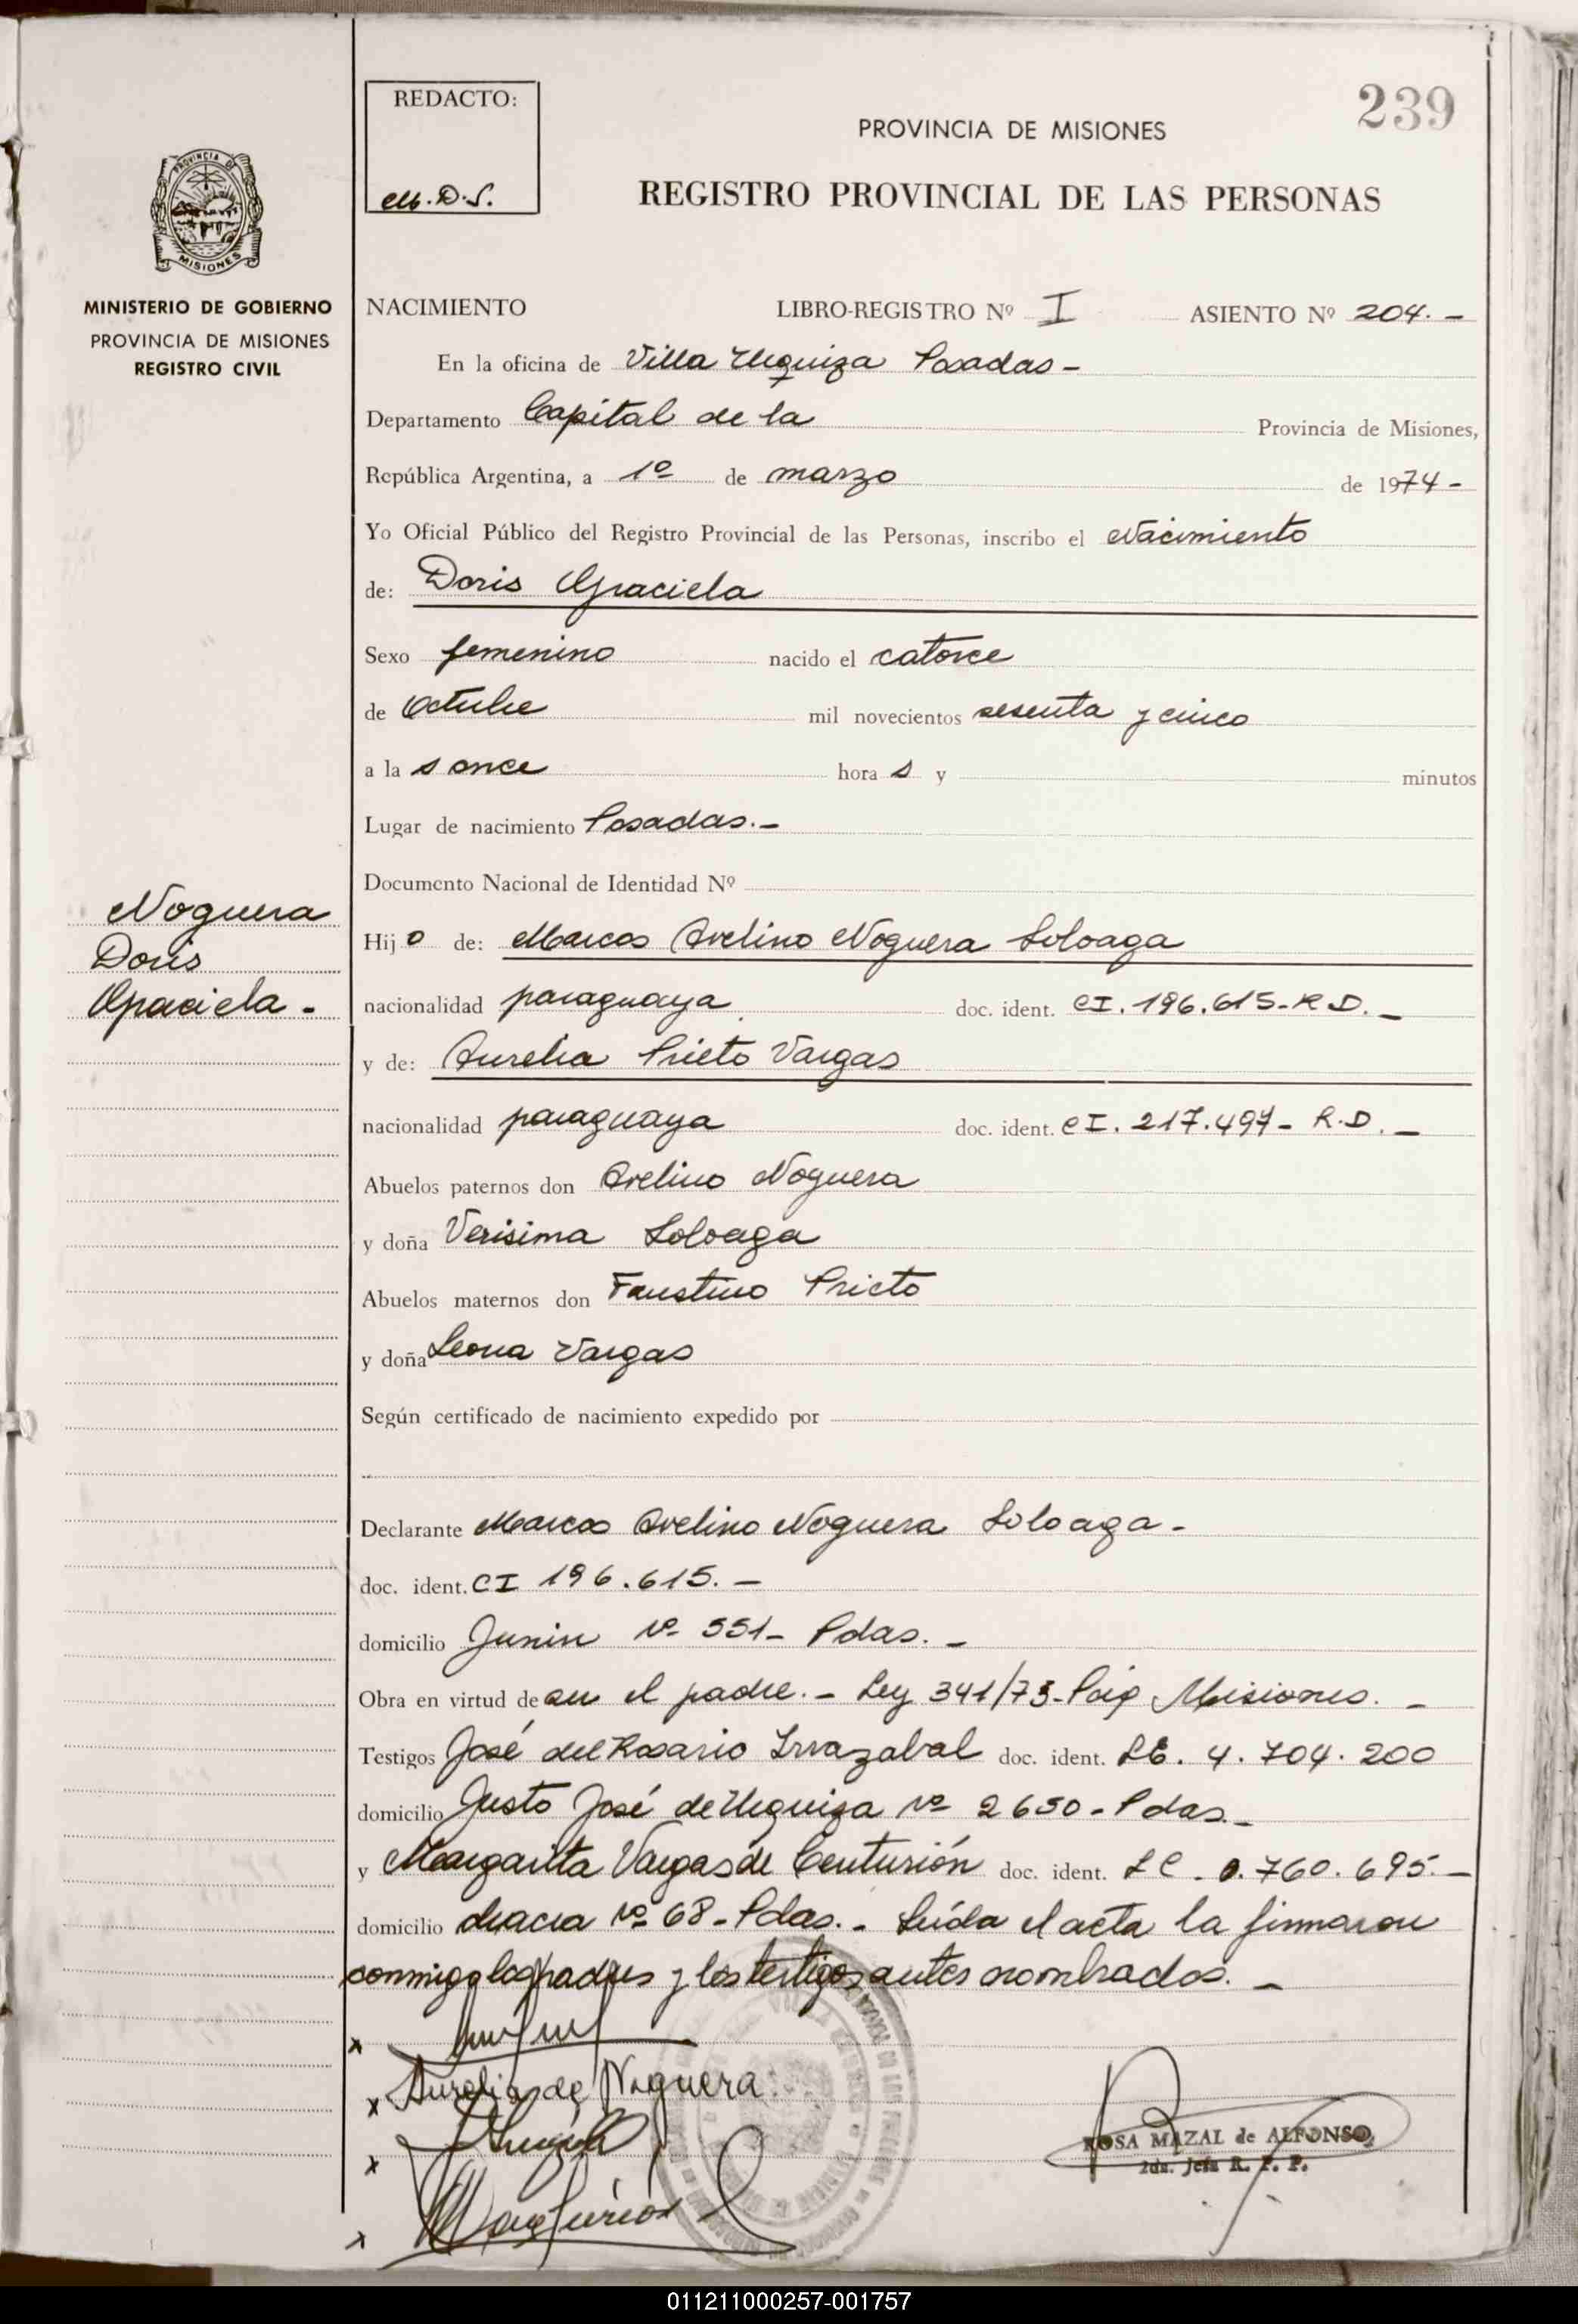 239
REDACTO:
PROVINCIA DE MISIONES
REGISTRO PROVINCIAL DE LAS PERSONAS
PROVINCIA DE
MISIONES
MINISTERIO DE GOBIERNO
PROVINCIA DE MISIONES
REGISTRO CIVIL
NACIMIENTO LIBRO-REGISTRO Nº I ASIENTO Nº 204. -
En la oficina de Villa Urquiza Posadas -
Departamento Capital de la Provincia de Misiones,
República Argentina, a 1º de marzo de 1974 -
Yo Oficial Público del Registro Provincial de las Personas, inscribo el Nacimiento
de: Doris Graciela
Sexo femenino nacido el catorce
de Octubre mil novecientos sesenta y cinco
a la s once hora s y minutos
Lugar de nacimiento Posadas. -
Documento Nacional de Identidad Nº
Noguera
Doris
Graciela -
Hij o de: Marcos Avelino Noguera Soloaga
nacionalidad paraguaya doc. ident. CI. 196.615 - R D. -
y de: Aurelia Prieto Vargas
nacionalidad paraguaya doc. ident. CI. 217.497 - R.D. -
Abuelos paternos don Avelino Noguera
y doña Verisima Soloaga
Abuelos maternos don Faustino Prieto
y doña Leona Vargas
Según certificado de nacimiento expedido por
Declarante Marcos Avelino Noguera Soloaga -
doc. ident. CI 196.615. -
domicilio Junin Nº 551 - Pdas. -
Obra en virtud de ser el padre. - Ley 341/73 - Misiones. -
Testigos José del Rosario Irrazabal doc. ident. LE. 4.704.200
domicilio Justo José de Urquiza Nº 2650 - Pdas. -
y Margarita Vargas de Centurión doc. ident. LC. 0.760.695. -
domicilio Nº 68 - Pdas. - Leída el acta la firmaron
conmigo los padres y los testigos antes nombrados. -
Aurelia de Noguera
ROSA MAZAL de ALFONSO
2da. Jefa R. P. P.
011211000257-001757